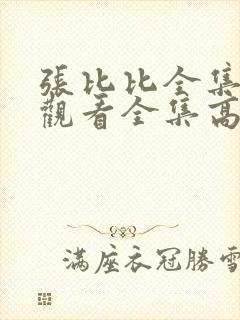 張比比全集
觀看全集高
滿座衣冠勝雪